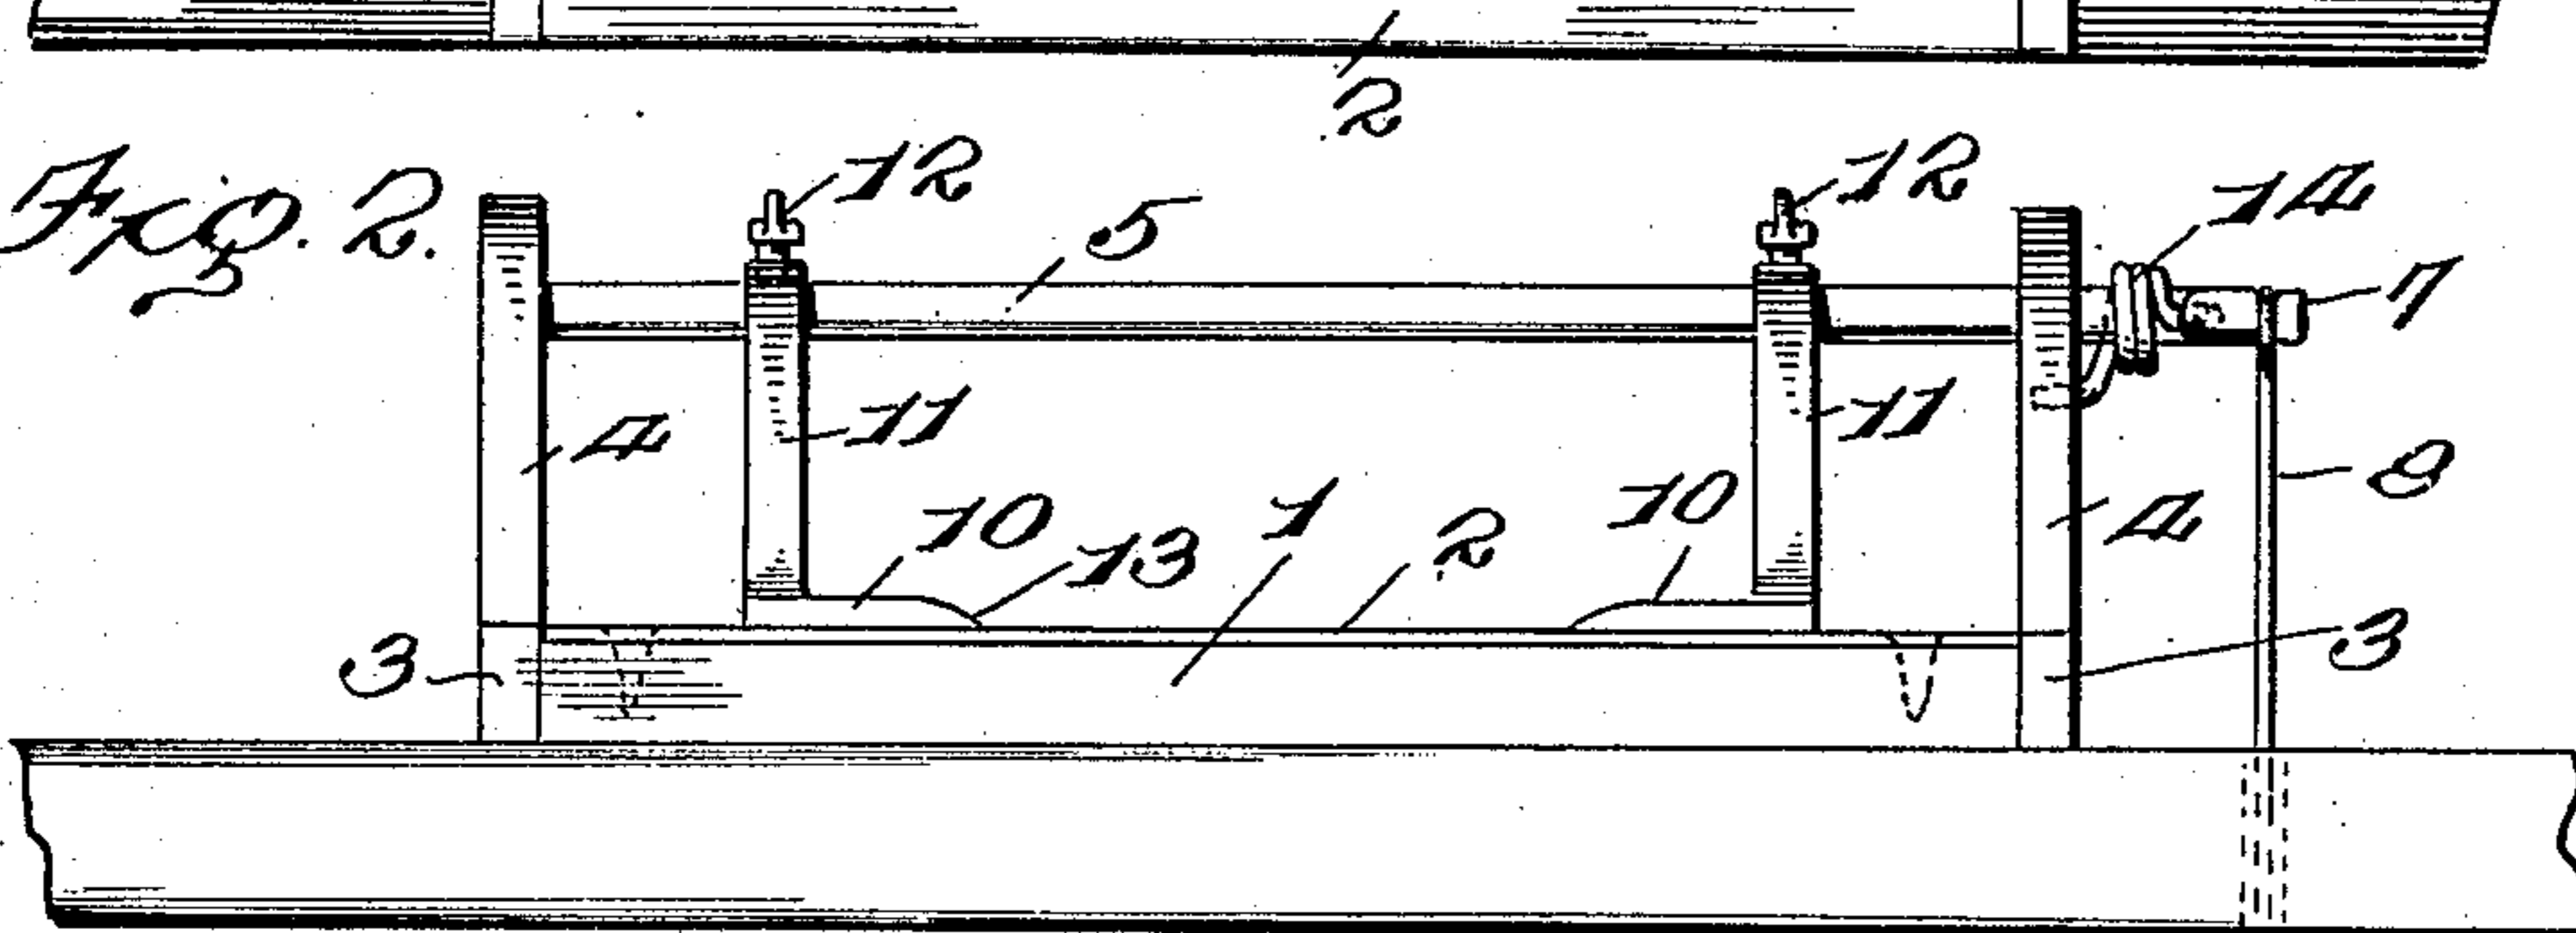 2
Fig. 2.
12
5
12
14
7
4
11
11
9
10
13
1
2
10
4
3
3